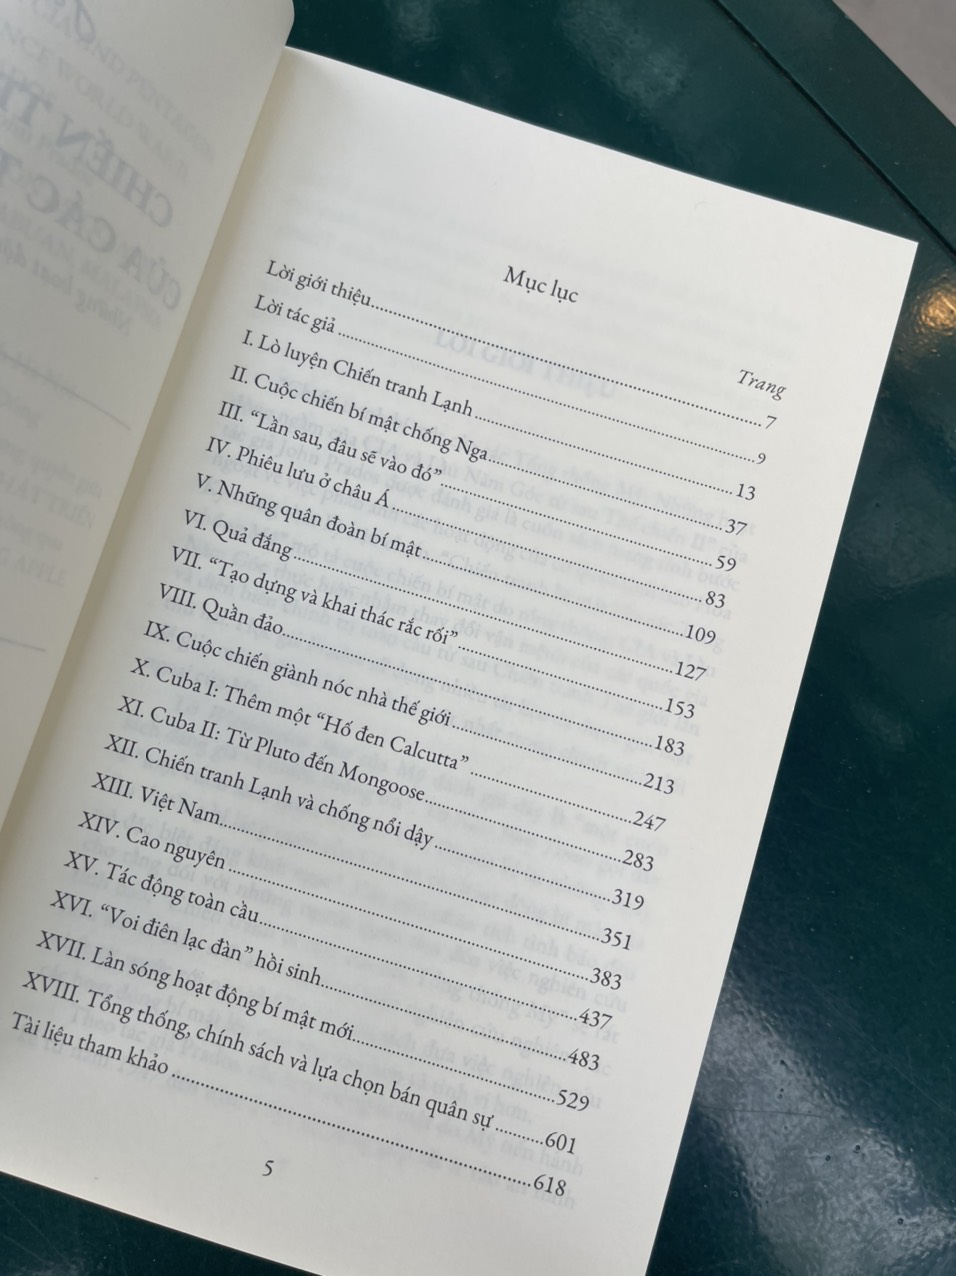 Mục lục
Trang
Lời giới thiệu..........7
Lời tác giả..........9
I. Lò luyện Chiến tranh Lạnh..........13
II. Cuộc chiến bí mật chống Nga..........37
III. “Lần sau, đâu sẽ vào đó”..........59
IV. Phiêu lưu ở châu Á..........83
V. Những quân đoàn bí mật..........109
VI. Quả đắng..........127
VII. “Tạo dựng và khai thác rắc rối”..........153
VIII. Quần đảo..........183
IX. Cuộc chiến giành nóc nhà thế giới..........213
X. Cuba I: Thêm một “Hố đen Calcutta”..........247
XI. Cuba II: Từ Pluto đến Mongoose..........283
XII. Chiến tranh Lạnh và chống nổi dậy..........319
XIII. Việt Nam..........351
XIV. Cao nguyên..........383
XV. Tác động toàn cầu..........437
XVI. “Voi điên lạc đàn” hồi sinh..........483
XVII. Làn sóng hoạt động bí mật mới..........529
XVIII. Tổng thống, chính sách và lựa chọn bán quân sự..........601
Tài liệu tham khảo..........618
5